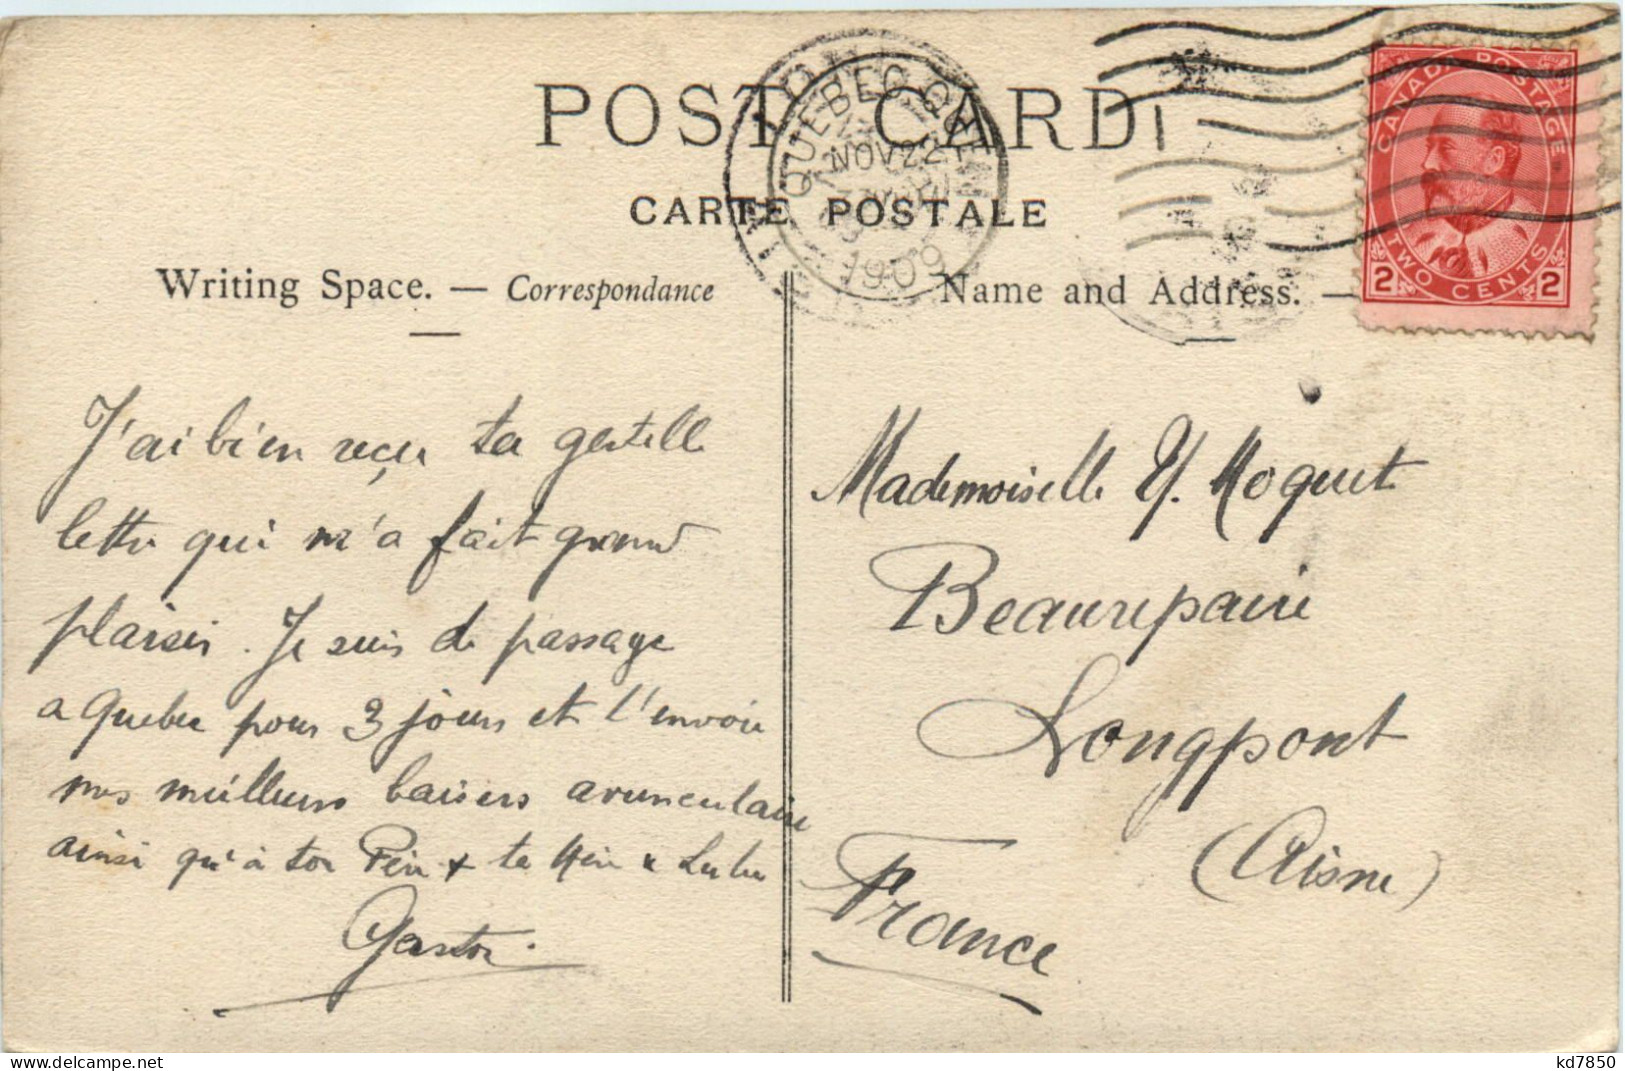 POST CARD
CARTE POSTALE
QUEBEC. QUE
NOV 22
1909
CANADA POSTAGE
2 TWO CENTS 2
Writing Space. — Correspondance
Name and Address. —
J'ai bien reçu ta gentille
lettre qui m'a fait grand
plaisir. Je suis de passage
a Quebec pour 3 jours et t'envoie
mes meilleurs baisers avunculaire
ainsi qu'à ton Père + ta Mère + Lulu
Gaston.
Mademoiselle Y. Moquet
Beaurepaire
Longpont
(Aisne)
France
www.delcampe.net
kd7850